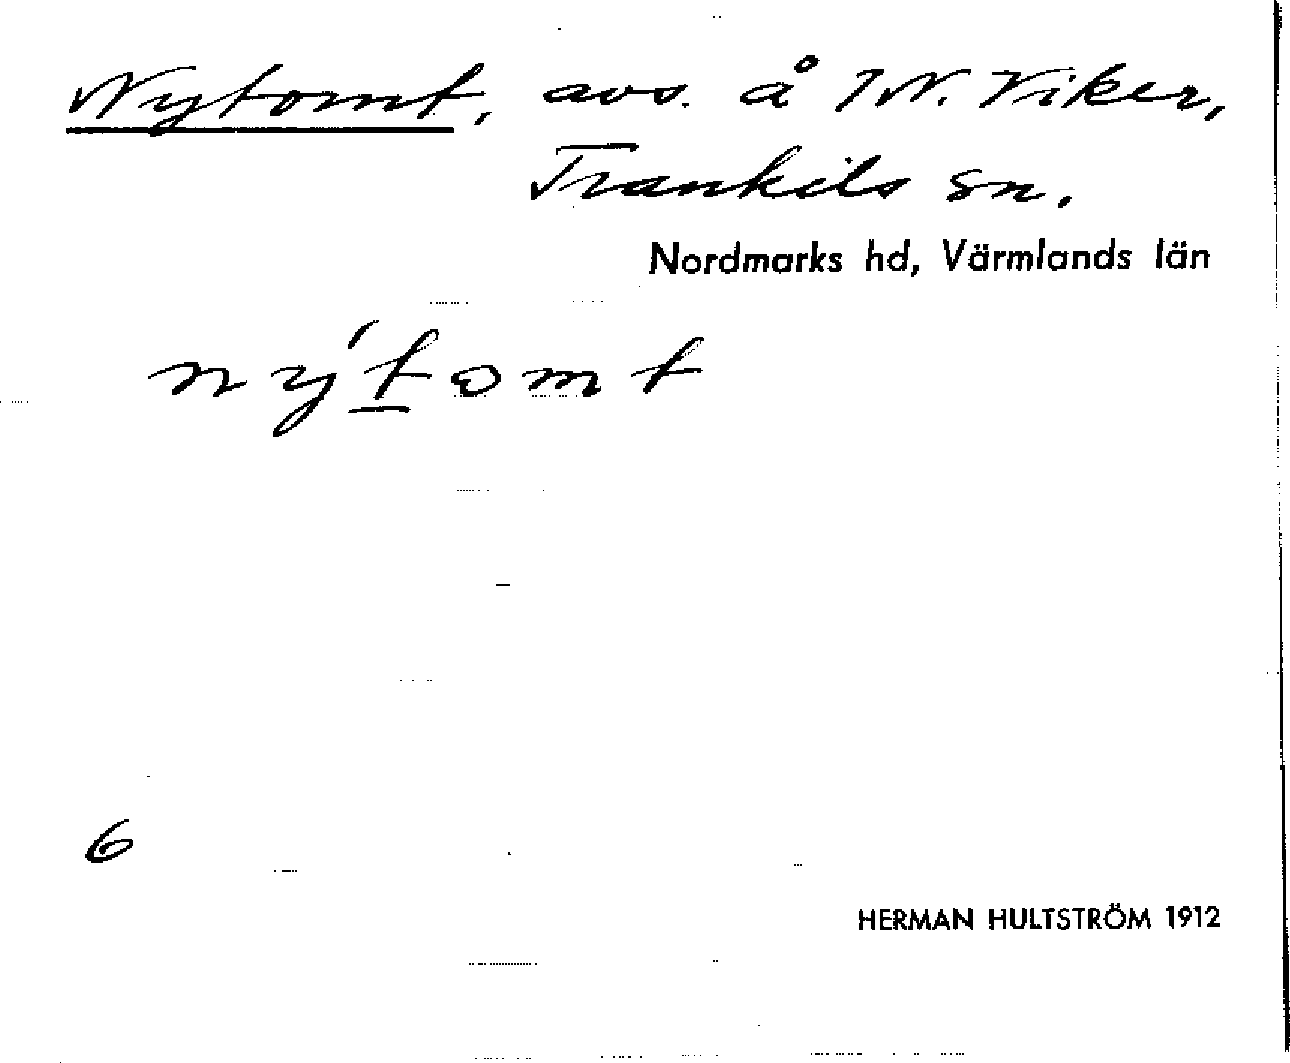 Nytomt, avs. å N. Viker,
Trankils sn.
Nordmarks hd, Värmlands län
ný́tomt
6
HERMAN HULTSTRÖM 1912